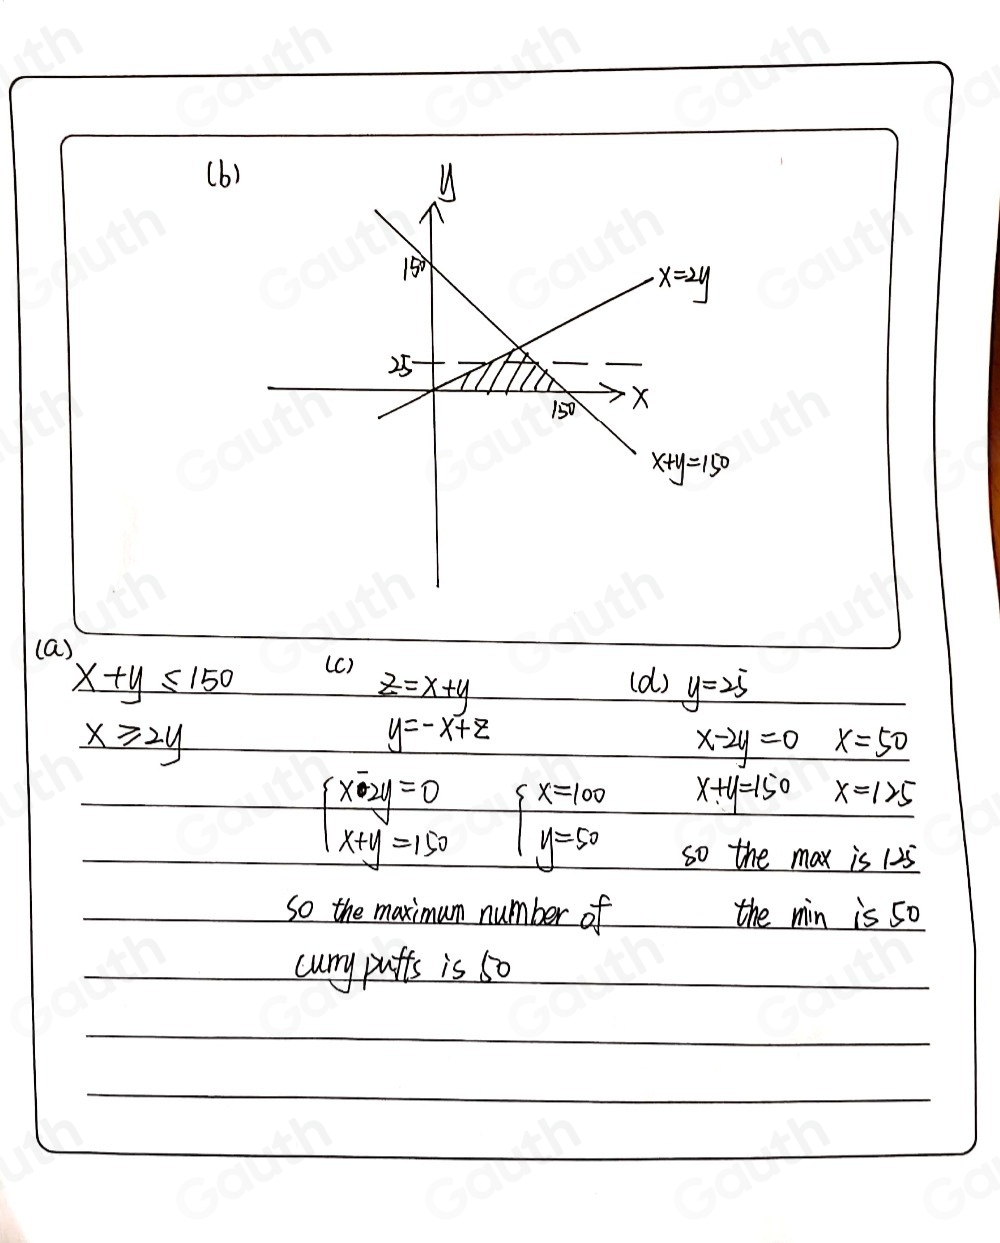 (b)
y
150
x=2y
25
x
150
x+y=150
(a)
x+y ≤ 150
x ≥ 2y
(c)
z=x+y
y=-x+z
x-2y=0
x+y=150
x=100
y=50
so the maximum number of
curry puffs is 50
(d) y=25
x-2y=0 x=50
x+y=150 x=125
so the max is 125
the min is 50
Gauth